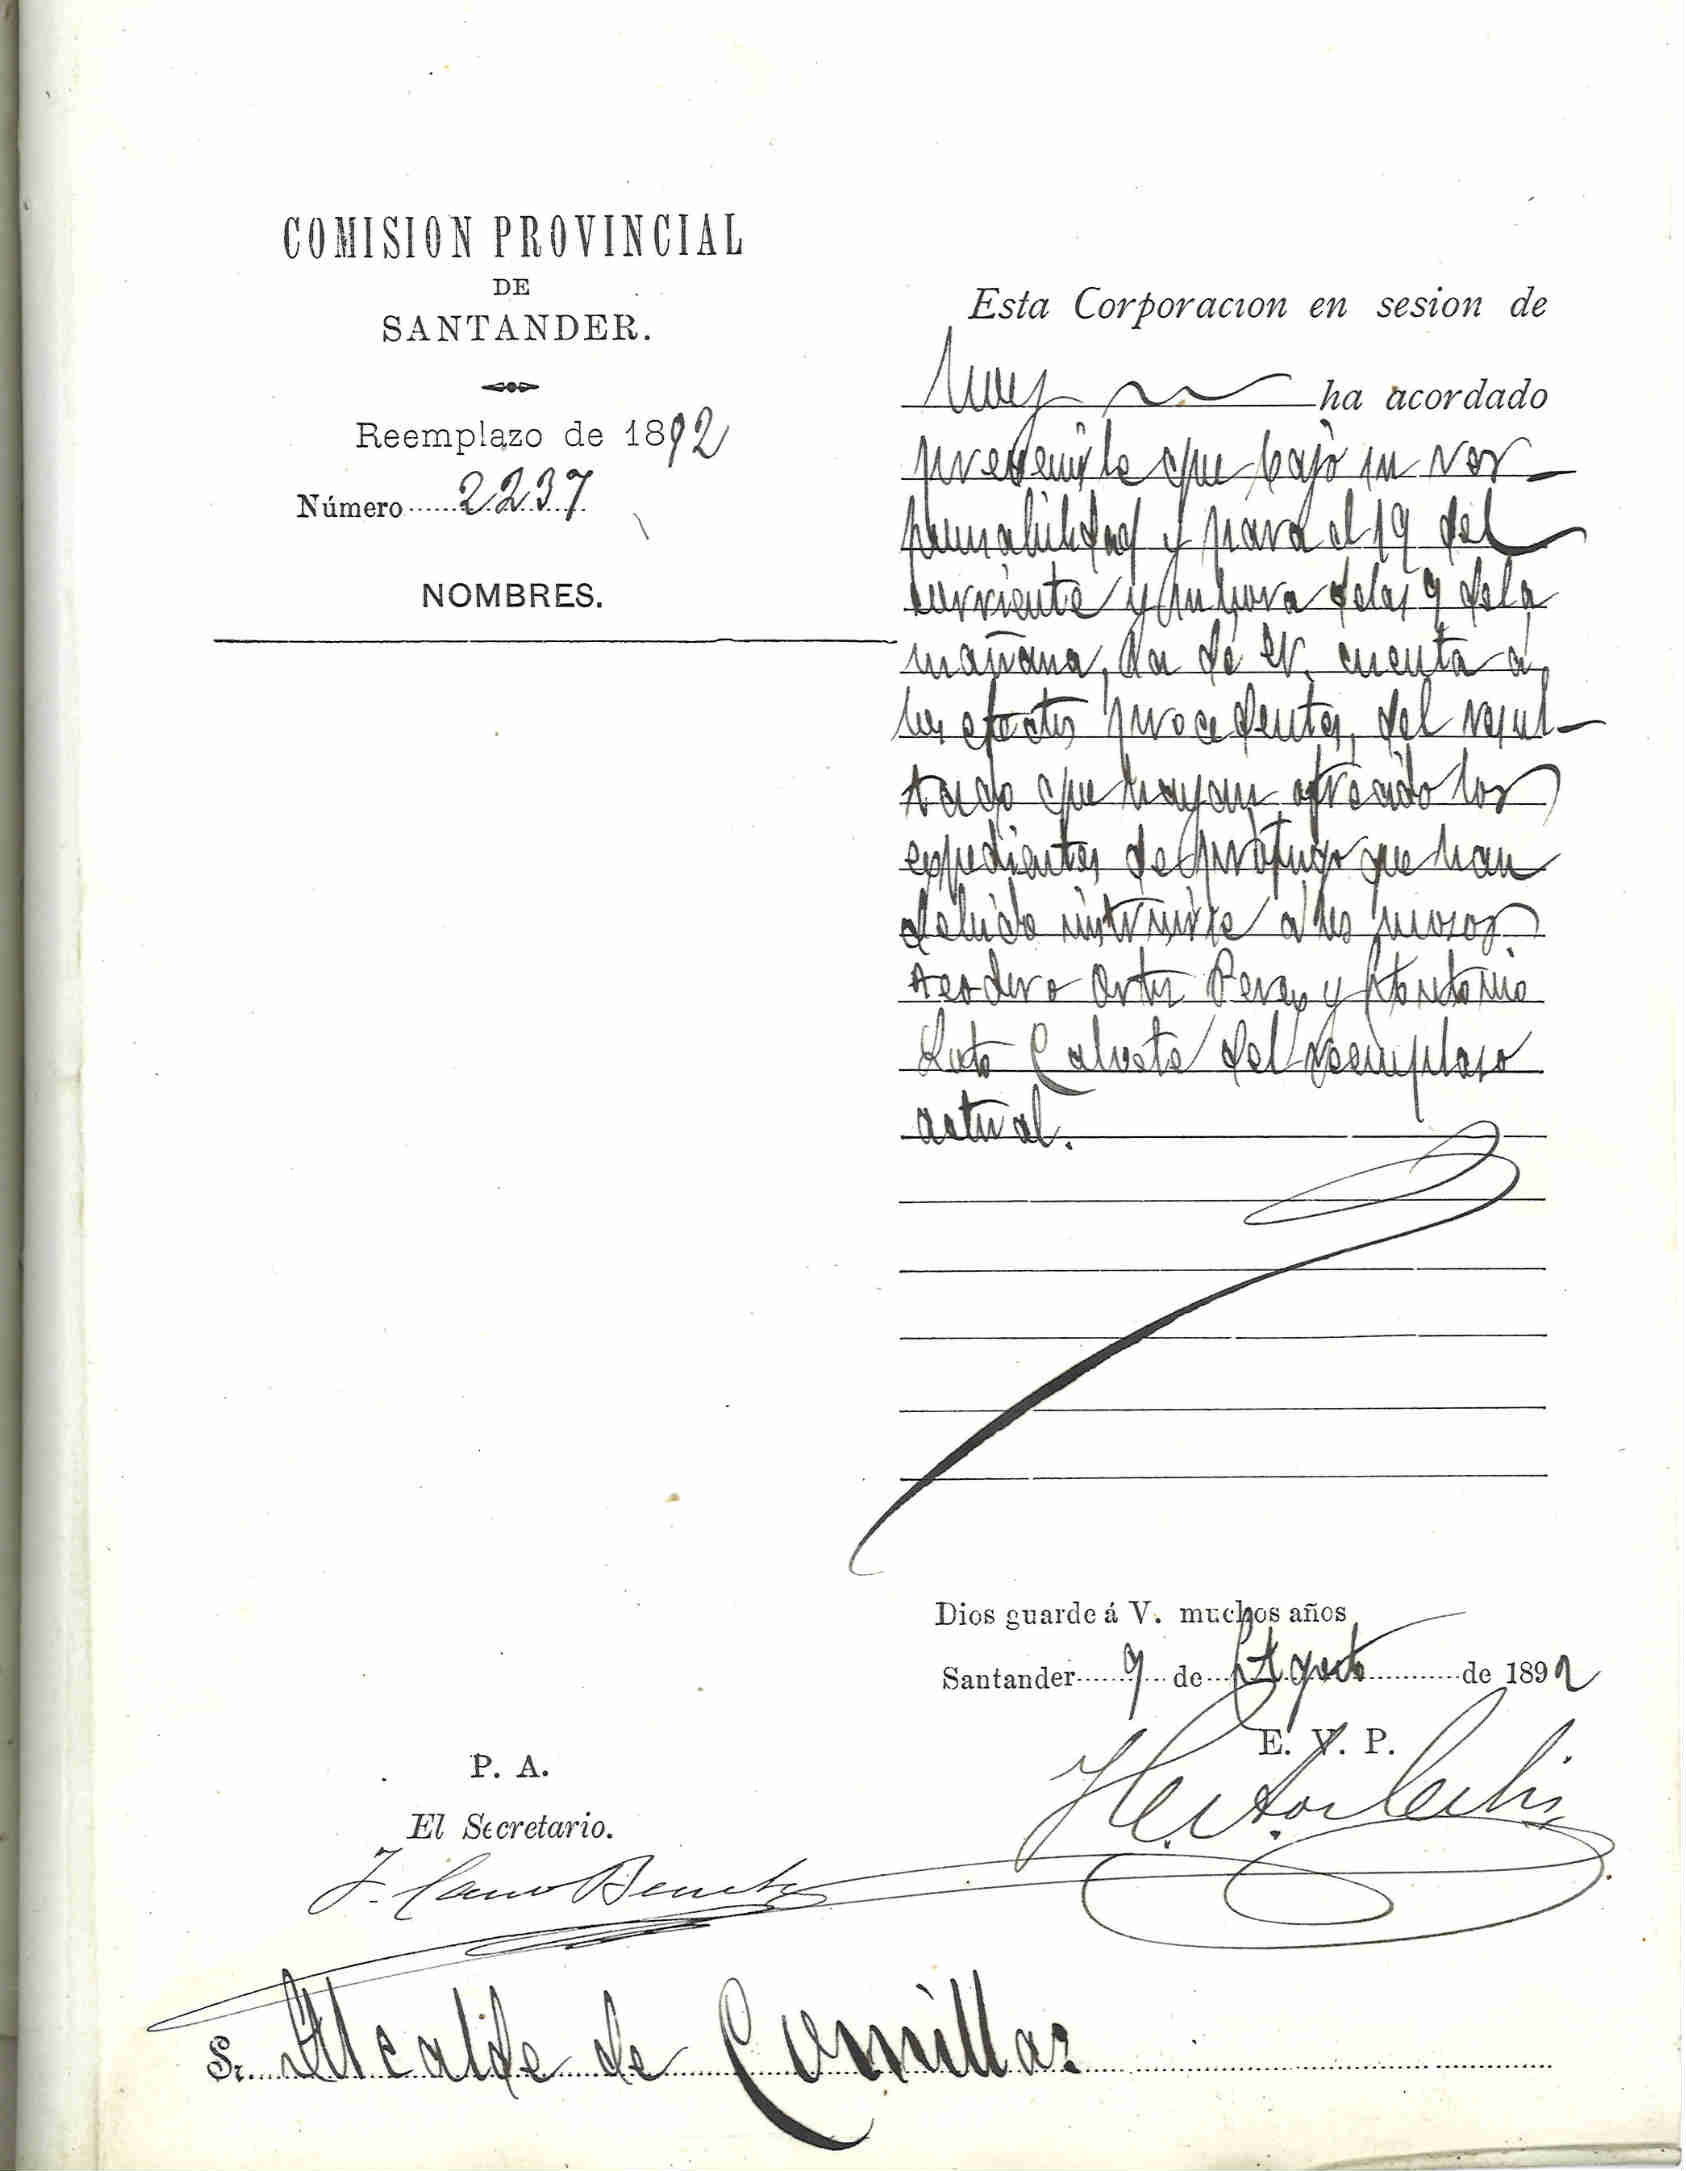 COMISION PROVINCIAL
DE
SANTANDER.
Reemplazo de 1892
Número 2237
NOMBRES.
Esta Corporacion en sesion de
hoy ha acordado
prevenirle que bajo su res-
ponsabilidad y para el 19 del
corriente y su hora de las 9 de la
mañana, da de V. cuenta á
los efectos procedentes, del resul-
tado que hayan ofrecido los
expedientes de prófugo que han
debido instruirse a los mozos
Teodoro Ortiz Perez y Antonio
Calvete del reemplazo
actual.
Dios guarde á V. muchos años
Santander 9 de Agosto de 1892
E. V. P.
P. A.
El Secretario.
Sr. Alcalde de Comillas